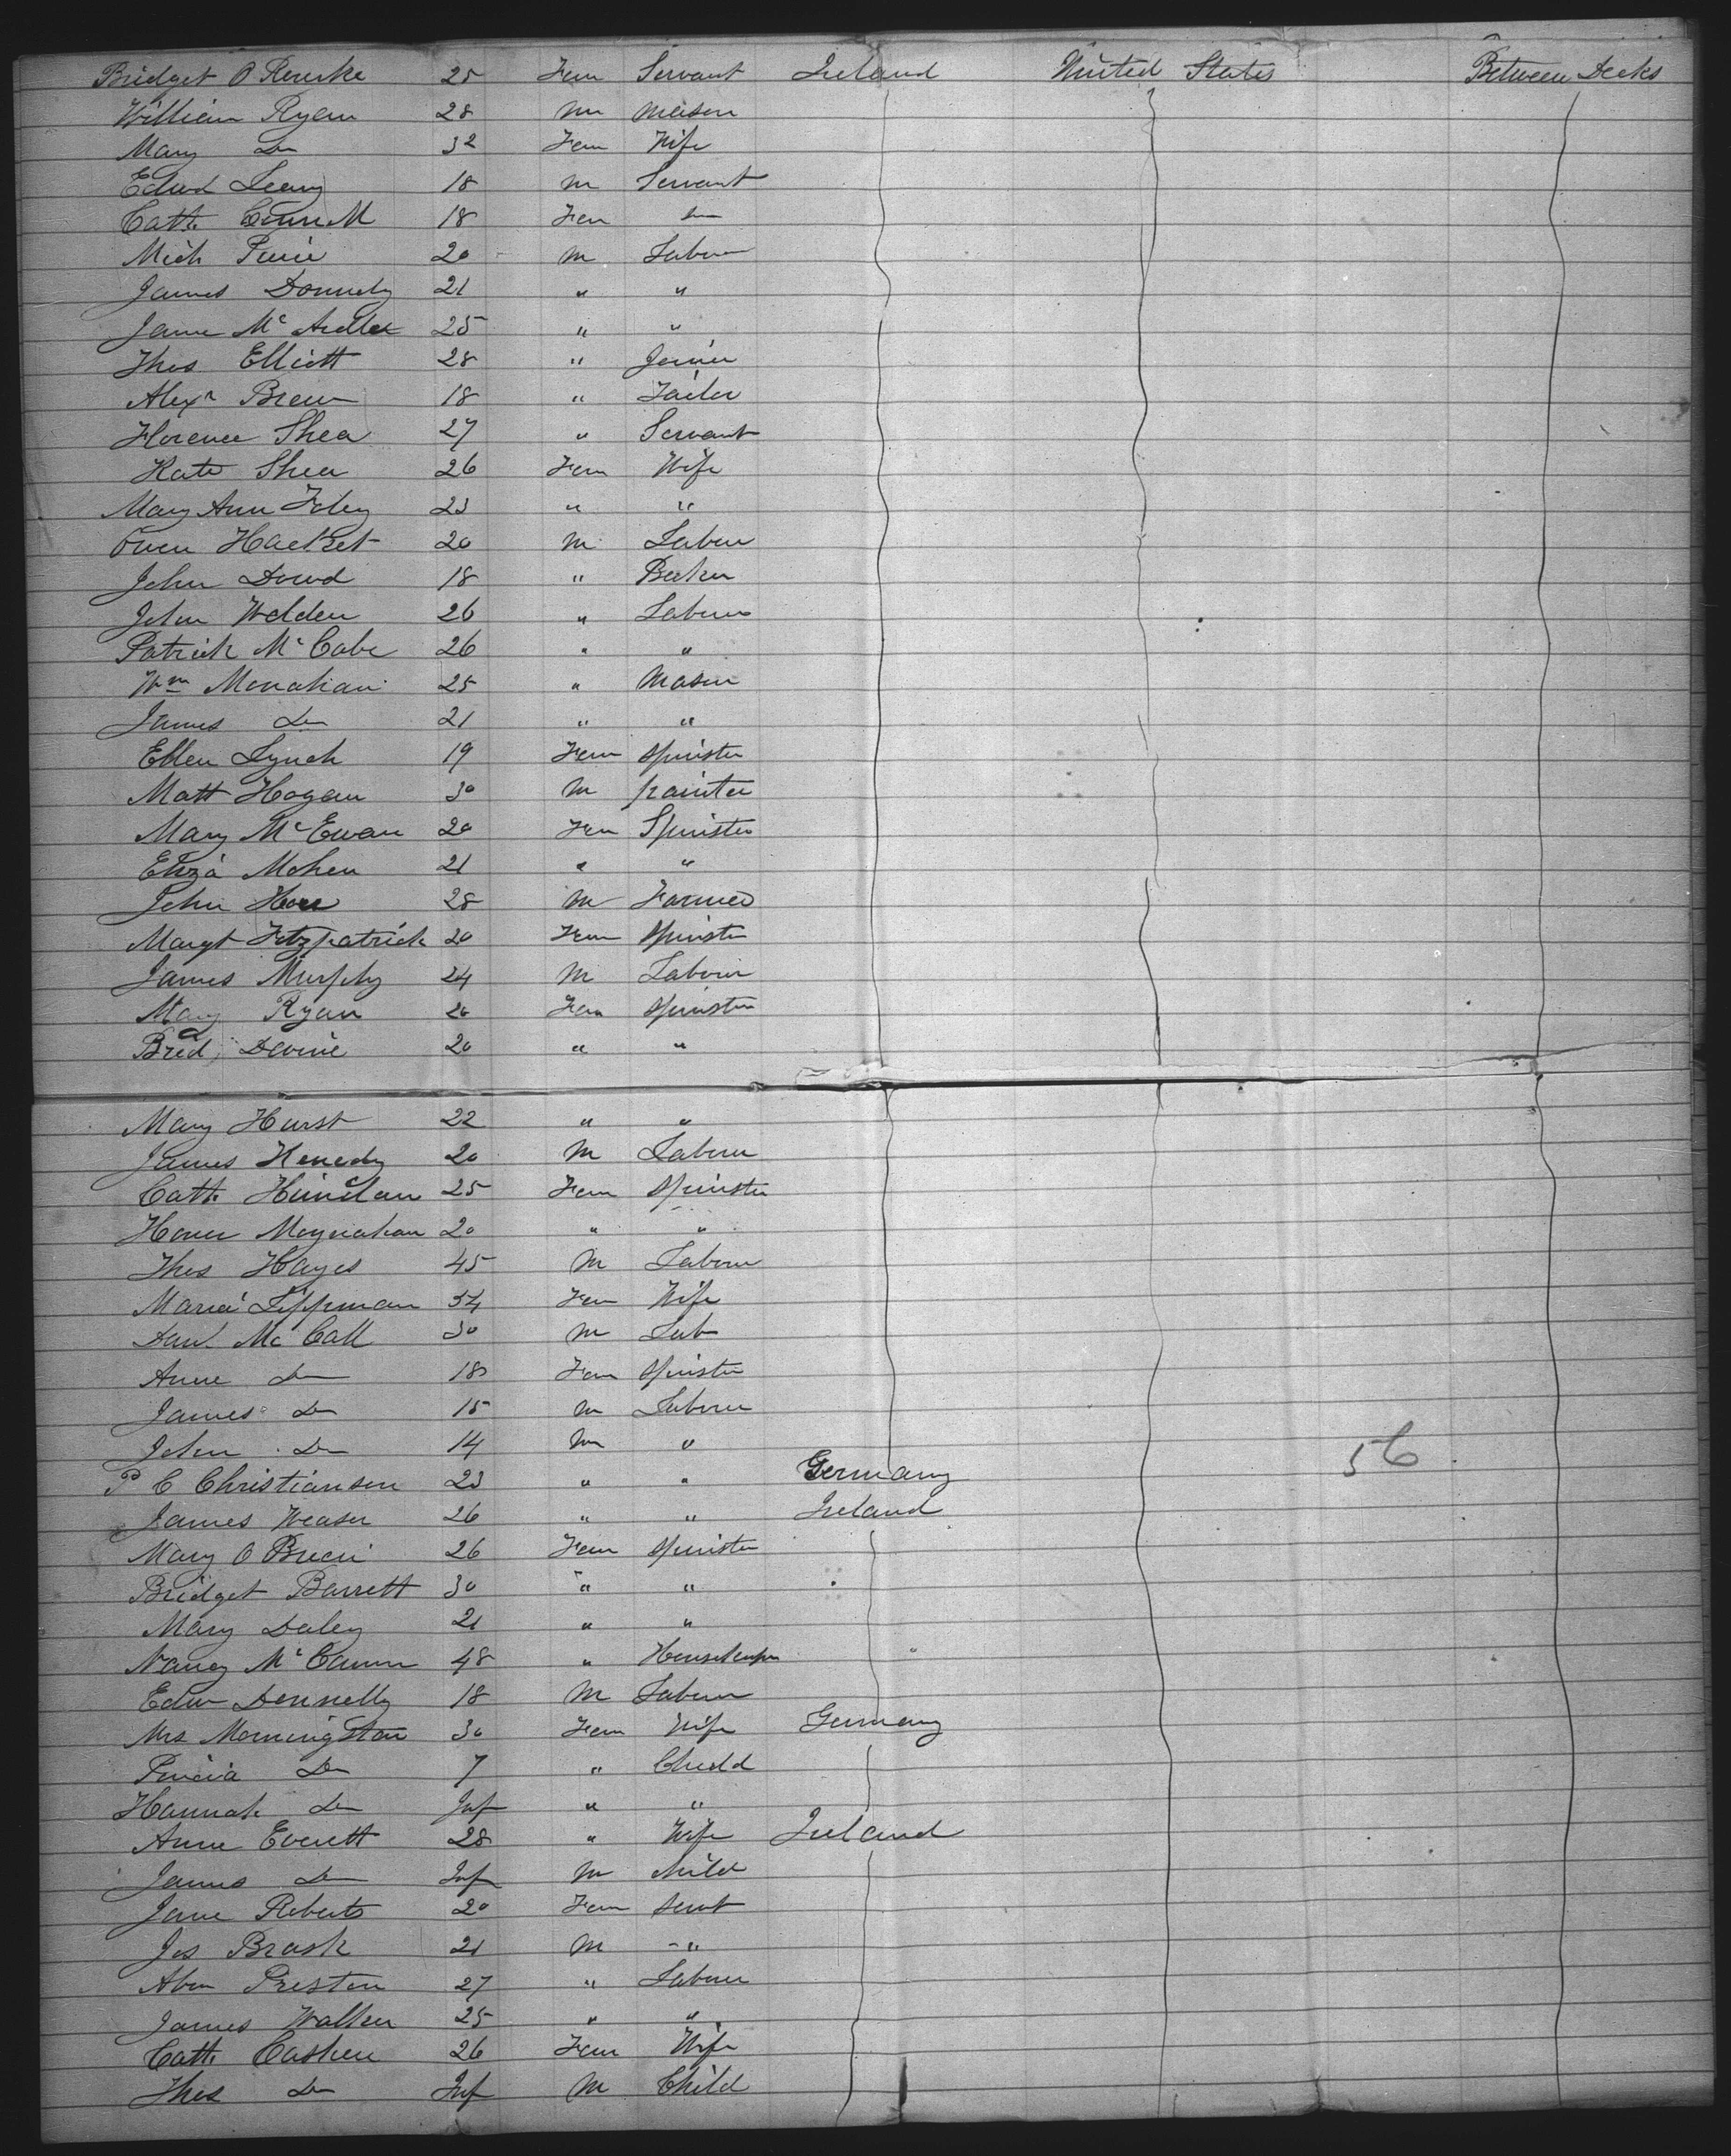 Bridget O Rourke 25 Fem Servant Ireland United States Between Decks
William Ryan 28 m Mason
Mary Do 32 Fem Wife
Edwd Leary 18 m Servant
Cath. Connell 18 Fem Do
Mich 20 m Labour
James Donnely 21 " "
Jame Mc Ardle 25 " "
Thos Elliott 28 " Joiner
Alexr Brew 18 " Tailor
Florence Shea 27 " Servant
Kate Shea 26 Fem Wife
Mary Ann Foley 23 " "
Owen Hacket 20 m Labour
John Dowd 18 " Baker
John Welden 26 " Labour
Patrick Mc Cabe 26 " "
Wm Monahan 25 " Mason
James Do 21 " "
Ellen Lynch 19 Fem Spinster
Matt Hogan 30 m painter
Mary Mc Ewan 20 Fem Spinster
Eliza Mohen 21 " "
John 28 m Farmer
Margt Fitzpatrick 20 Fem Spinster
James Murphy 24 m Labour
Mary Ryan 20 Fem Spinster
Brid Devine 20 " "
Mary Hurst 22 " "
James Kenedy 20 m Labour
Cath. 25 Fem Spinster
Honor Moynahan 20 " "
Thos Hayes 45 m Labour
Maria Lippman 34 Fem Wife
Danl Mc Call 30 m Lab
Anne Do 18 Fem Spinster
James Do 15 m Labour
John Do 14 m "
P C Christiansen 23 " " Germany
James Weaser 26 " " Ireland
Mary O Brien 26 Fem Spinster
Bridget Barrett 30 " "
Mary Daley 21 " "
Nancy Mc Cann 48 " Housekeeper "
Edw Donnelly 18 m Labour
Mrs Morningstar 30 Fem Wife Germany
Do 7 " Child
Hannah Do Inf " "
Anne Everett 28 " Wife Ireland
James Do Inf m child
Jane Roberts 20 Fem Servt
Jos Brask 21 m "
Abm Preston 27 " Labour
James Walker 25 " "
Cath. Cashen 26 Fem Wife
Thos Do Inf m Child
56